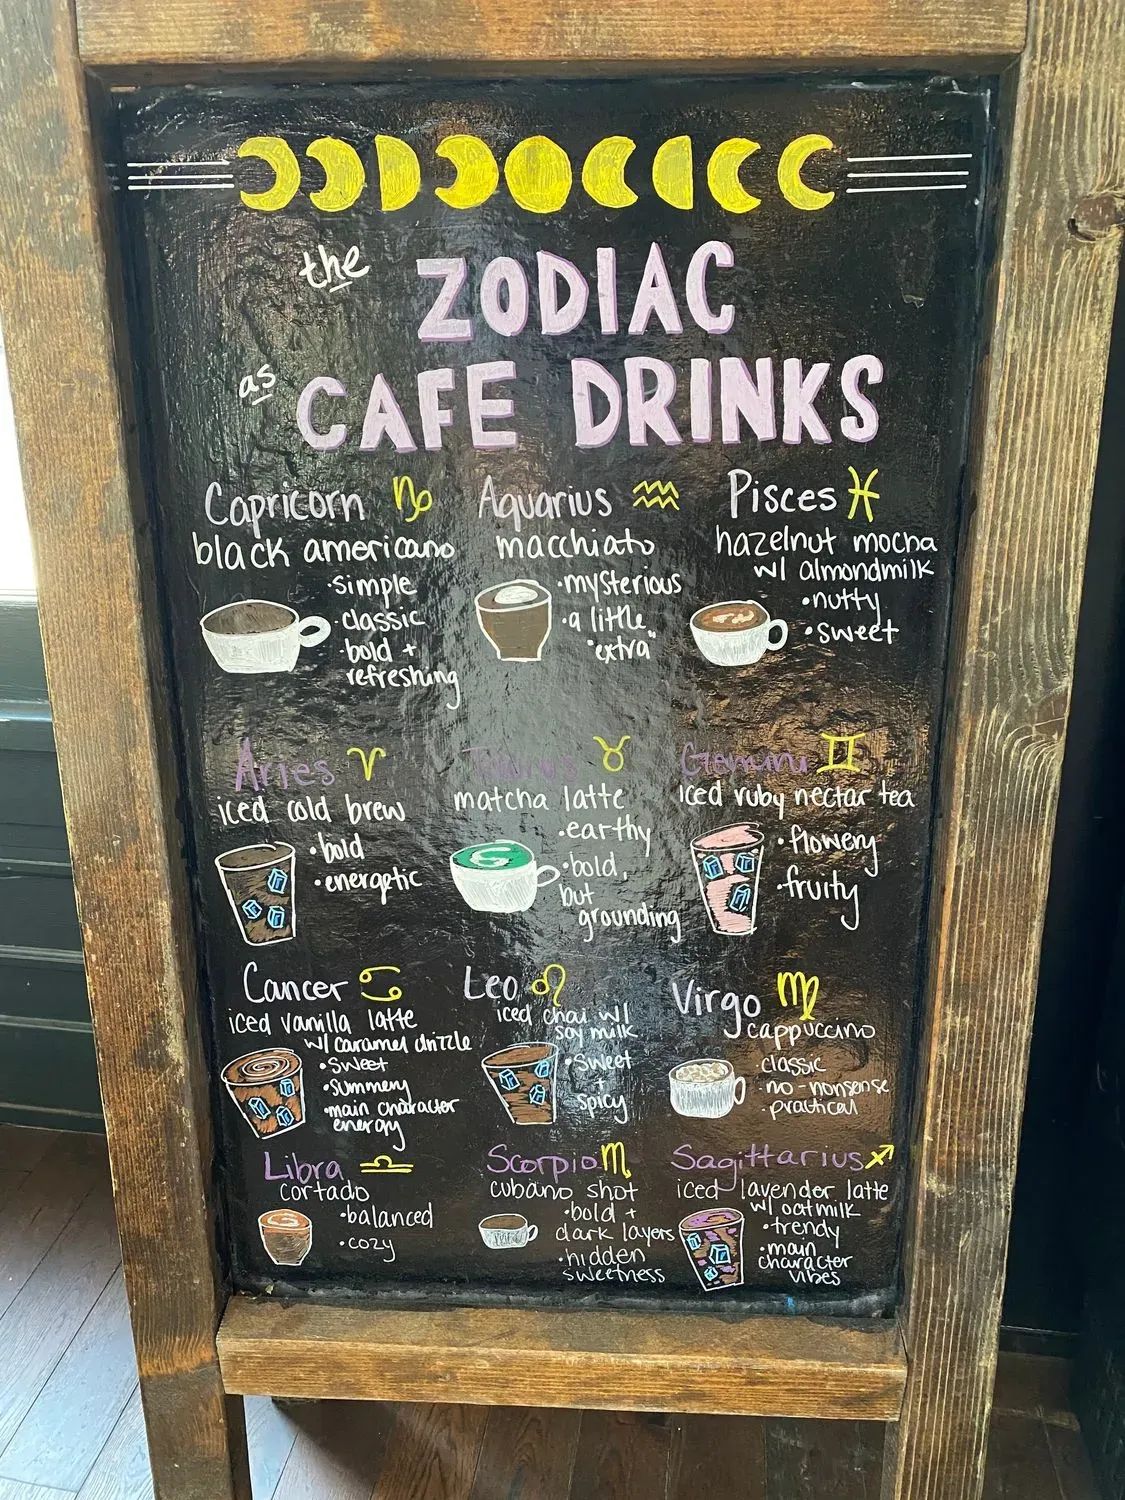 the ZODIAC
as CAFE DRINKS
Capricorn ♑
black americano
·simple
·classic
·bold +
refreshing
Aquarius ♒
macchiato
·mysterious
·a little
"extra"
Pisces ♓
hazelnut mocha
w/ almondmilk
·nutty
·sweet
Aries ♈
iced cold brew
·bold
·energetic
Taurus ♉
matcha latte
·earthy
·bold,
but
grounding
Gemini ♊
iced ruby nectar tea
·flowery
·fruity
Cancer ♋
iced vanilla latte
w/ caramel drizzle
·sweet
·summery
·main character
energy
Leo ♌
iced chai w/
soy milk
·sweet
+
spicy
Virgo ♍
cappuccino
·classic
·no-nonsense
·practical
Libra ♎
cortado
·balanced
·cozy
Scorpio ♏
cubano shot
·bold +
dark layers
·hidden
sweetness
Sagittarius ♐
iced lavender latte
w/ oatmilk
·trendy
·main
character
vibes